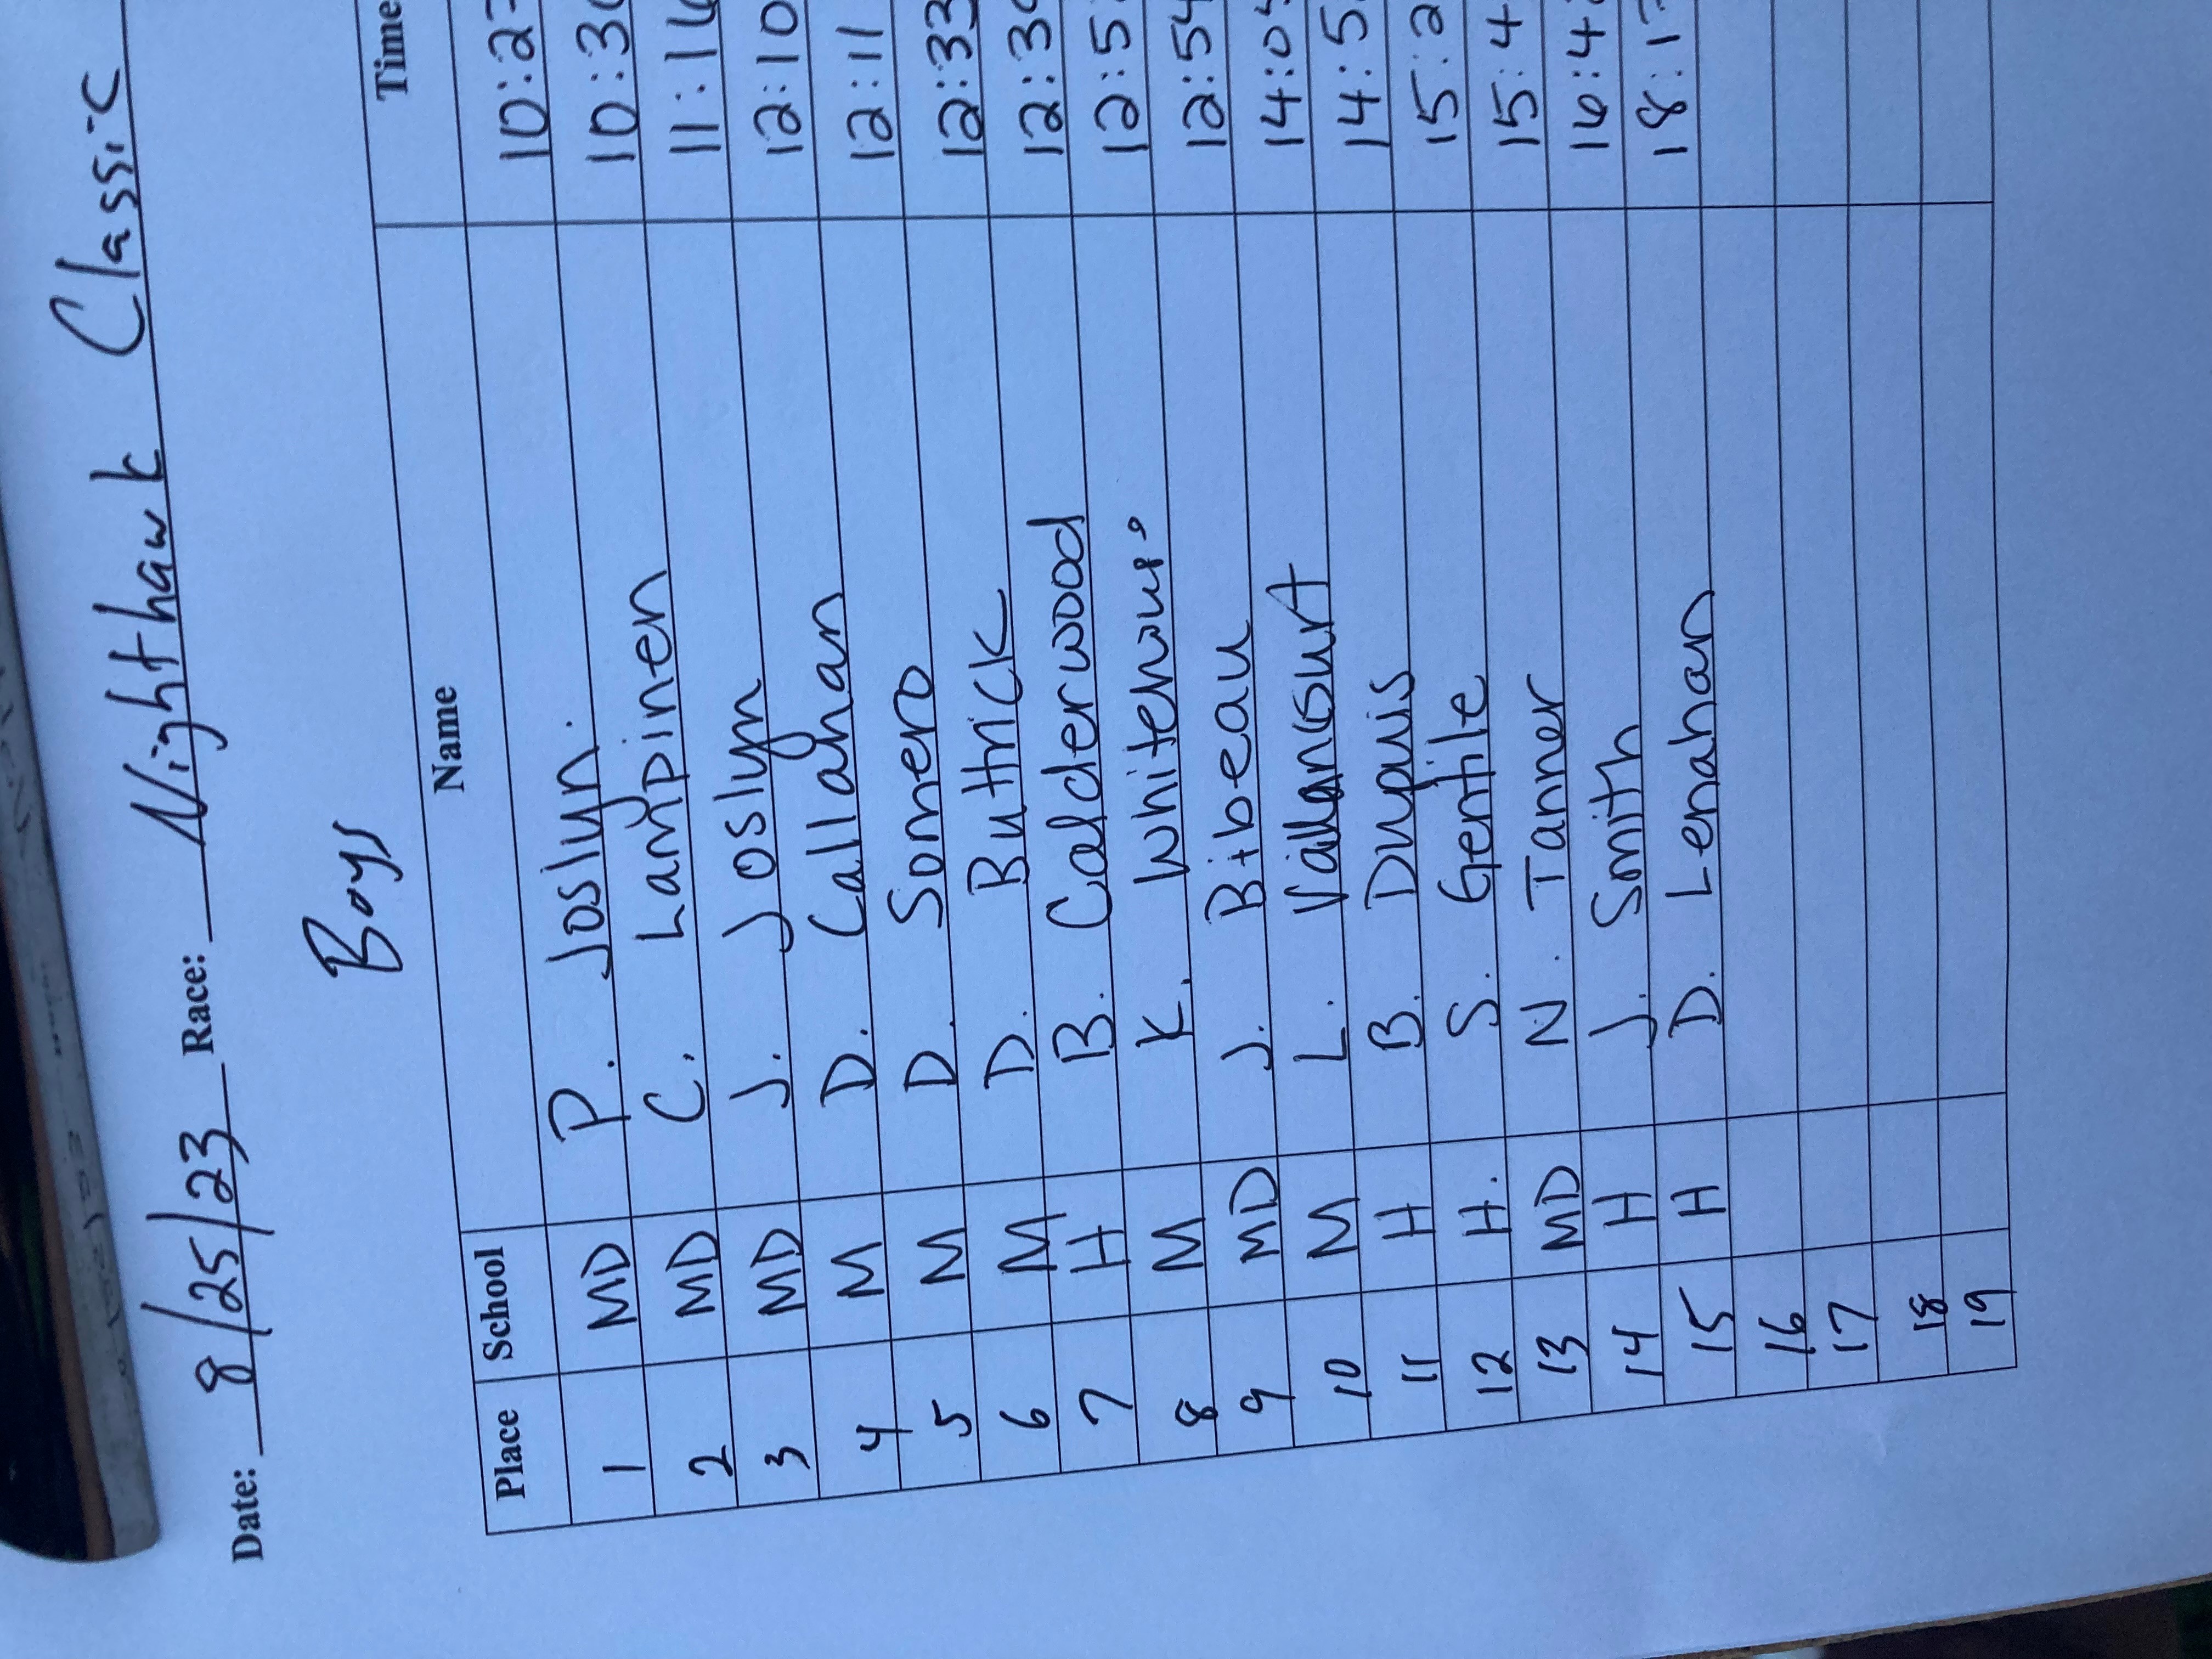 Date: 8/25/23 Race: Nighthawk Classic
Boys
Place School Name Time
1 MD P. Joslyn. 10:27
2 MD C. Lampinen 10:3
3 MD J. Joslyn 11:16
4 M D. Callahan 12:10
5 M D. Somero 12:11
6 M D. Buttrick 12:33
7 H B. Calderwood 12:3
8 M K. 12:5
9 MD J. Bibeau 12:54
10 M L. 14:0
11 H B. Dupuis 14:5
12 H. S. Gentile 15:2
13 MD N. Tanner 15:4
14 H J. Smith 16:4
15 H D. Lenahan 18:1
16
17
18
19